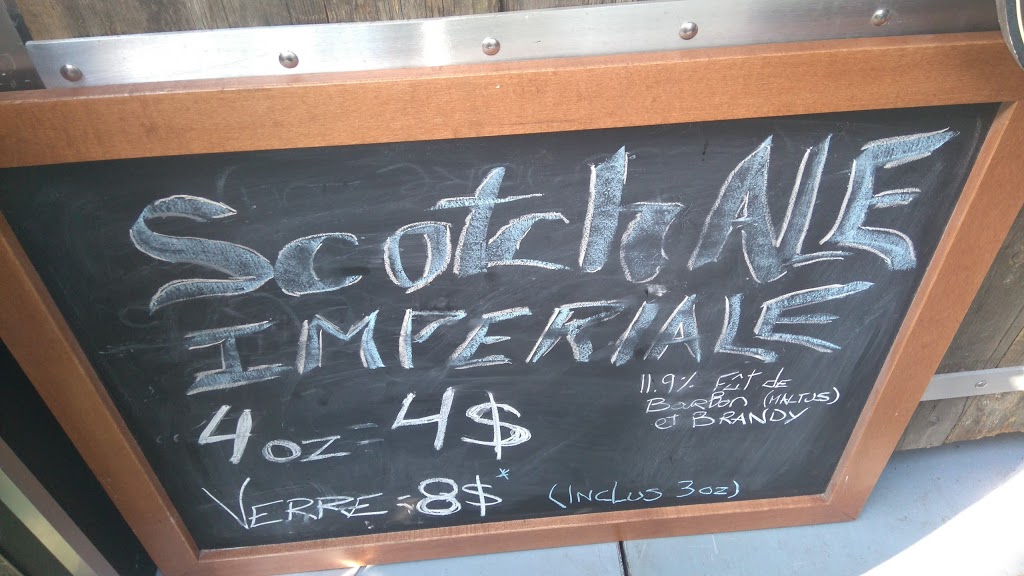 Scotch ALE
IMPERIALE
11.9% Fût de
Bourbon (MALTUS)
et BRANDY
4 oz = 4$
VERRE = 8$* (INCLUS 3 oz)